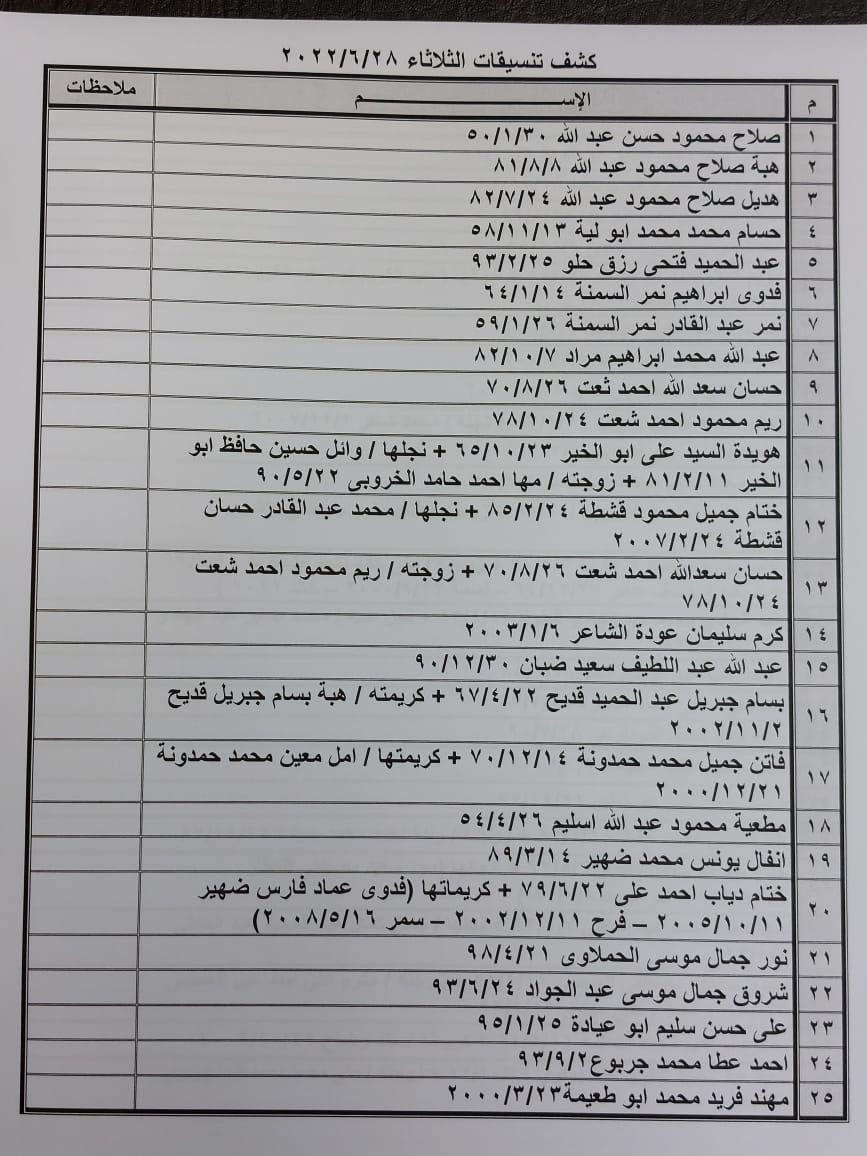 كشف تنسيقات الثلاثاء ٢٠٢٢/٦/٢٨
م الإســــــم ملاحظات
١ صلاح محمود حسن عبد الله ٥٠/١/٣٠
٢ هبة صلاح محمود عبد الله ٨١/٨/٨
٣ هديل صلاح محمود عبد الله ٨٢/٧/٢٤
٤ حسام محمد محمد ابو لية ٥٨/١١/١٣
٥ عبد الحميد فتحى رزق حلو ٩٣/٢/٢٥
٦ فدوى ابراهيم نمر السمنة ٦٤/١/١٤
٧ نمر عبد القادر نمر السمنة ٥٩/١/٢٦
٨ عبد الله محمد ابراهيم مراد ٨٢/١٠/٧
٩ حسان سعد الله احمد ثعت ٧٠/٨/٢٦
١٠ ريم محمود احمد شعت ٧٨/١٠/٢٤
١١ هويدة السيد على ابو الخير ٦٥/١٠/٢٣ + نجلها / وائل حسين حافظ ابو
الخير ٨١/٢/١١ + زوجته / مها احمد حامد الخروبى ٩٠/٥/٢٢
١٢ ختام جميل محمود قشطة ٨٥/٢/٢٤ + نجلها / محمد عبد القادر حسان
قشطة ٢٠٠٧/٢/٢٤
١٣ حسان سعدالله احمد شعت ٧٠/٨/٢٦ + زوجته / ريم محمود احمد شعت
٧٨/١٠/٢٤
١٤ كرم سليمان عودة الشاعر ٢٠٠٣/١/٦
١٥ عبد الله عبد اللطيف سعيد ضبان ٩٠/١٢/٣٠
١٦ بسام جبريل عبد الحميد قديح ٦٧/٤/٢٢ + كريمته / هبة بسام جبريل قديح
٢٠٠٢/١١/٢
١٧ فاتن جميل محمد حمدونة ٧٠/١٢/١٤ + كريمتها / امل معين محمد حمدونة
٢٠٠٠/١٢/٢١
١٨ مطعية محمود عبد الله اسليم ٥٤/٤/٢٦
١٩ انفال يونس محمد ضهير ٨٩/٣/١٤
٢٠ ختام دياب احمد على ٧٩/٦/٢٢ + كريماتها (فدوى عماد فارس ضهير
٢٠٠٥/١٠/١١ – فرح ٢٠٠٢/١٢/١١ – سمر ٢٠٠٨/٥/١٦)
٢١ نور جمال موسى الحملاوى ٩٨/٤/٢١
٢٢ شروق جمال موسى عبد الجواد ٩٣/٦/٢٤
٢٣ على حسن سليم ابو عيادة ٩٥/١/٢٥
٢٤ احمد عطا محمد جربوع٩٣/٩/٢
٢٥ مهند فريد محمد ابو طعيمة٢٠٠٠/٣/٢٣